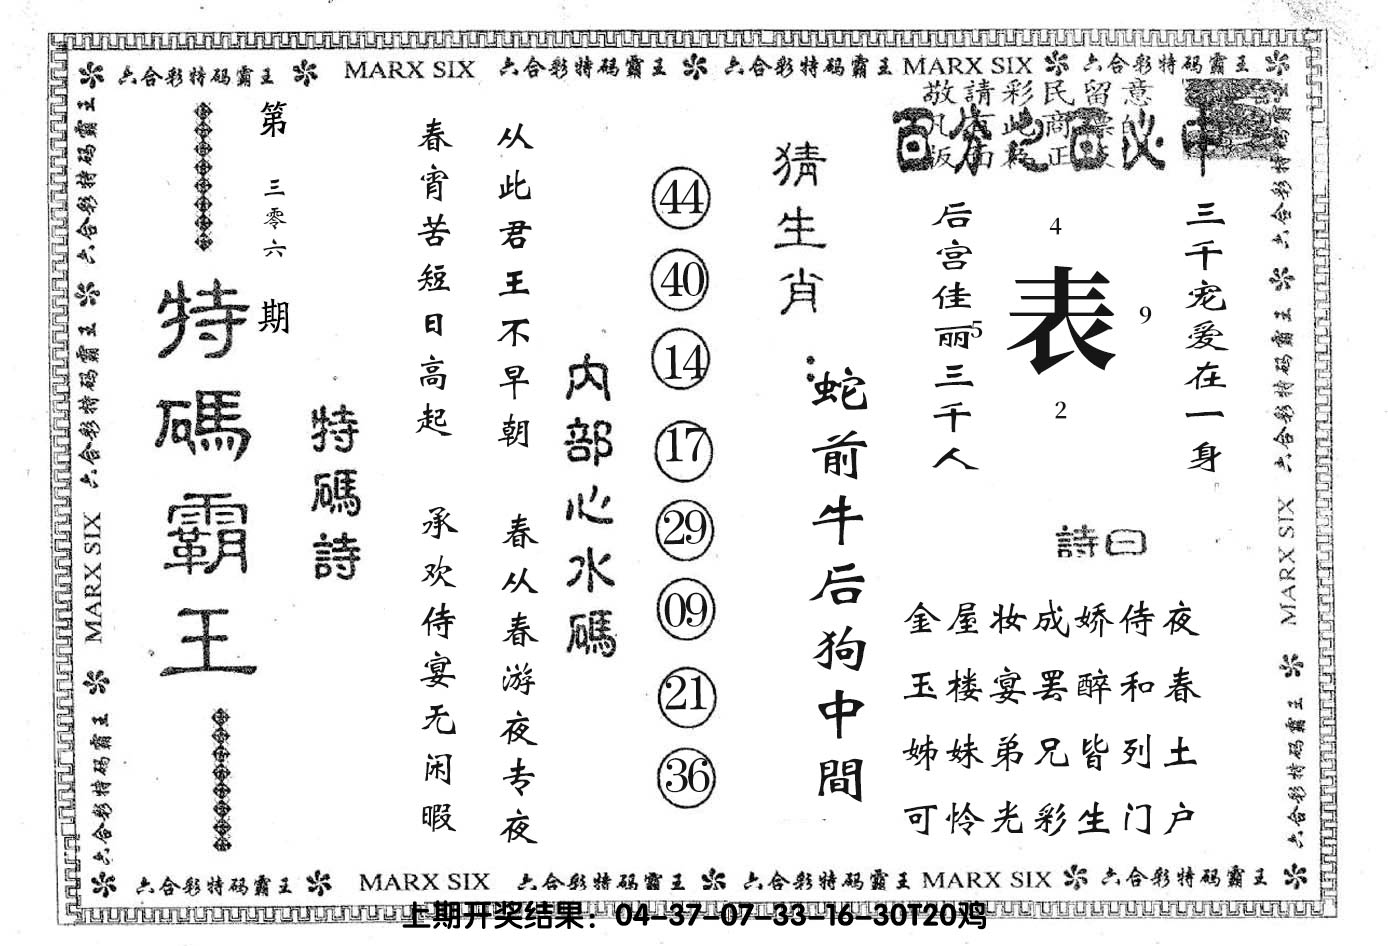 六合彩特码霸王 MARX SIX 六合彩特码霸王 六合彩特码霸王 MARX SIX 六合彩特码霸王
敬請彩民留意
三千宠爱在一身
4
表
9
5
2
后宫佳丽三千人
詩曰
金屋妆成娇侍夜
玉楼宴罢醉和春
姊妹弟兄皆列土
可怜光彩生门户
猜生肖:
蛇前牛后狗中間
44
40
14
17
29
09
21
36
内部心水碼
从此君王不早朝
春从春游夜专夜
春宵苦短日高起
承欢侍宴无闲暇
特碼詩
第三零六期
特碼霸王
六合彩特码霸王 六合彩特码霸王 MARX SIX 六合彩特码霸王
六合彩特码霸王 六合彩特码霸王 MARX SIX 六合彩特码霸王
六合彩特码霸王 MARX SIX 六合彩特码霸王 六合彩特码霸王 MARX SIX 六合彩特码霸王
上期开奖结果：04-37-07-33-16-30T20鸡